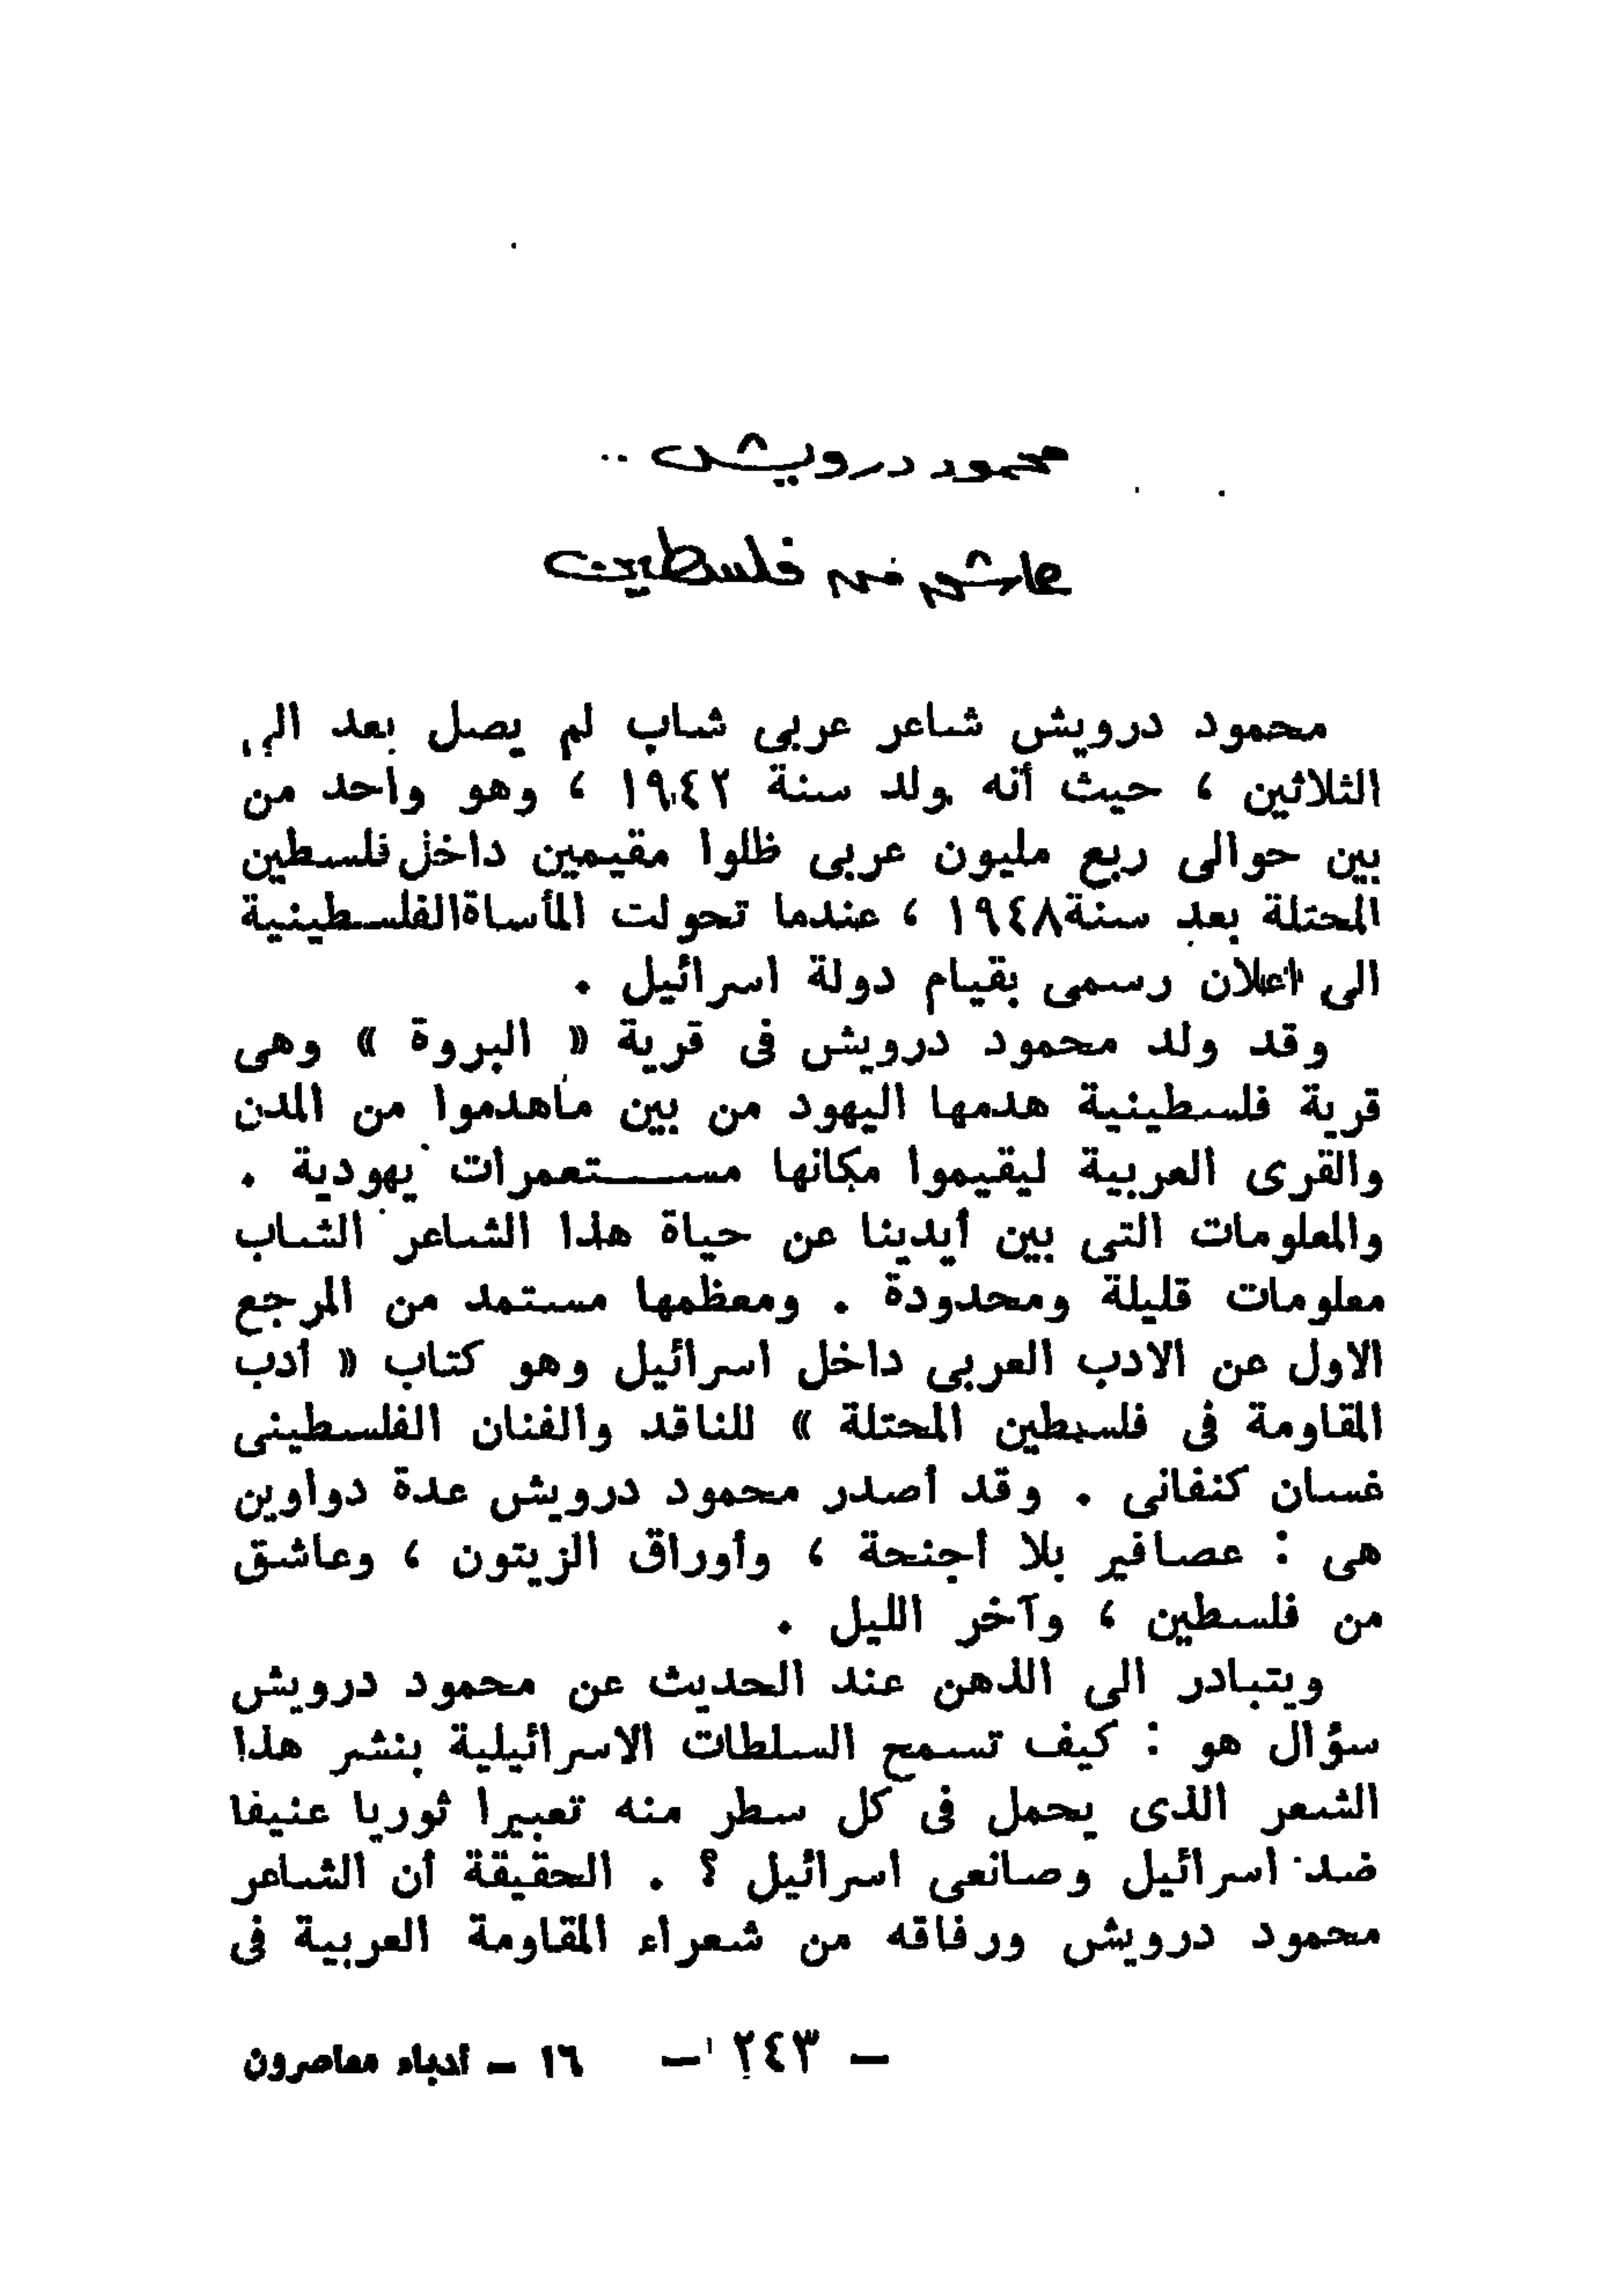 محمود درويش ..
عاشق من فلسطين
محمود درويش شاعر عربى شاب لم يصل بعد الى
الثلاثين ، حيث أنه ولد سنة ١٩٤٢ ، وهو واحد من
بين حوالى ربع مليون عربى ظلوا مقيمين داخل فلسطين
المحتلة بعد سنة ١٩٤٨ ، عندما تحولت المأساة الفلسطينية
الى اعلان رسمى بقيام دولة اسرائيل .
وقد ولد محمود درويش فى قرية « البروة » وهى
قرية فلسطينية هدمها اليهود من بين ماهدموا من المدن
والقرى العربية ليقيموا مكانها مستعمرات يهودية .
والمعلومات التى بين أيدينا عن حياة هذا الشاعر الشاب
معلومات قليلة ومحدودة . ومعظمها مستمد من المرجع
الاول عن الادب العربى داخل اسرائيل وهو كتاب « أدب
المقاومة فى فلسطين المحتلة » للناقد والفنان الفلسطينى
غسان كنفانى . وقد أصدر محمود درويش عدة دواوين
هى : عصافير بلا أجنحة ، وأوراق الزيتون ، وعاشق
من فلسطين ، وآخر الليل .
ويتبادر الى الذهن عند الحديث عن محمود درويش
سؤال هو : كيف تسمح السلطات الاسرائيلية بنشر هذا
الشعر الذى يحمل فى كل سطر منه تعبيرا ثوريا عنيفا
ضد اسرائيل وصانعى اسرائيل ؟ . الحقيقة أن الشاعر
محمود درويش ورفاقه من شعراء المقاومة العربية فى
— ٢٤٣ — ١٦ — أدباء معاصرون